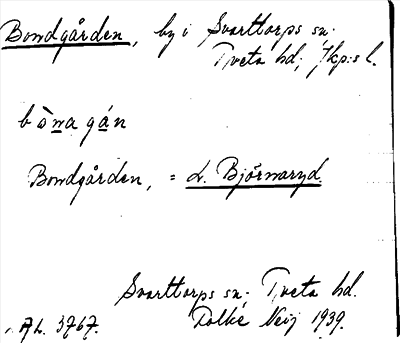 Bondgården, by i Svarttorps sn;
Tveta hd; Jkp:s l.
bònagán
Bondgården, = L. Björnaryd.
Svarttorps sn; Tveta hd.
AL. 3767. Folke Neij 1939.